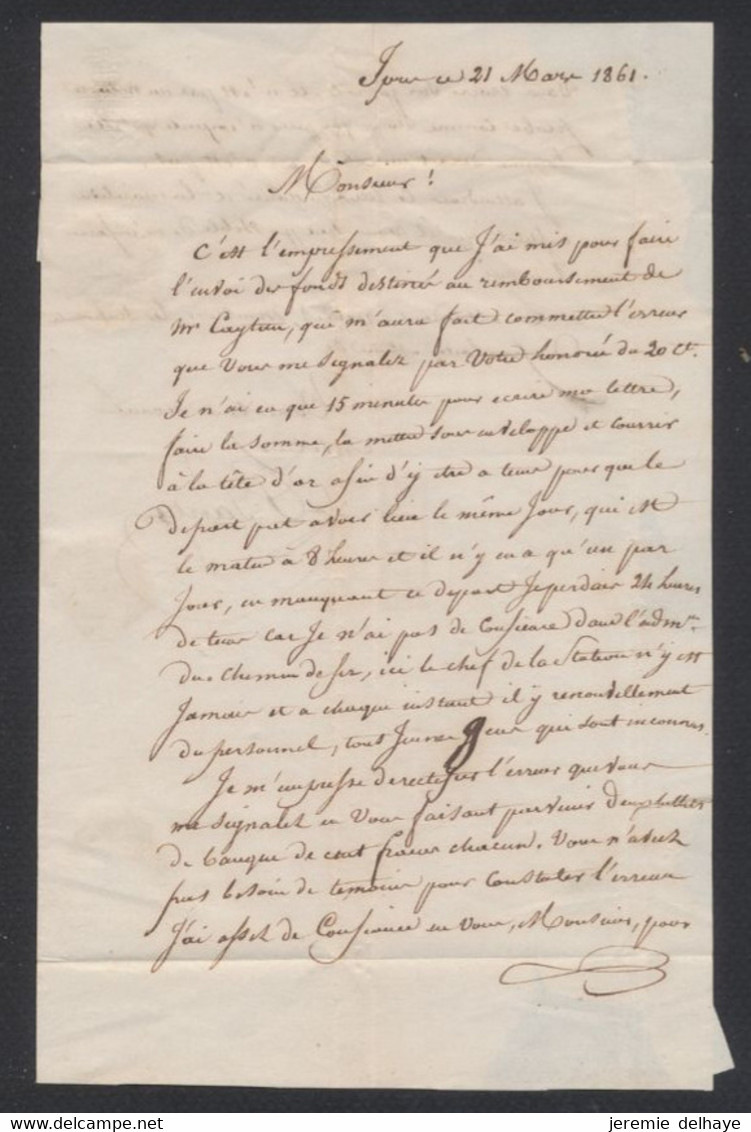 ce 21 Mars 1861.
Monsieur!
C'est l'empressement que J'ai mis pour faire
l'envoi des fonds destinés au remboursement de
Mr qui m'aura fait commettre l'erreur
que Vous me signalez par Votre honorée du 20 ct.
Je n'ai eu que 15 minutes pour ecrire ma lettre,
faire la somme, la mettre sous enveloppe et courrir
à la tête d'or afin d'y etre a tems pour que le
depart put avoir lieu le même Jour, qui est
le matin à 8 heures et il n'y en a qu'un par
Jour, en manquant ce depart Je perdais 24 heures
de tems car Je n'ai pas de Confiance dans l'admon
du Chemin de fer, ici le chef de la Station n'y est
Jamais et a chaque instant il y renouvellement
du personnel, tous Jeunes gens qui sont inconnus.
Je m'empresse de rectifier l'erreur que vous
me signalez en Vous faisant parvenir deux billets
de banque de cent francs chacun. Vous n'aviez
pas besoin de temoins pour Constater l'erreur
J'ai assez de Confiance en Vous, Monsieur, pour
jeremie delhaye